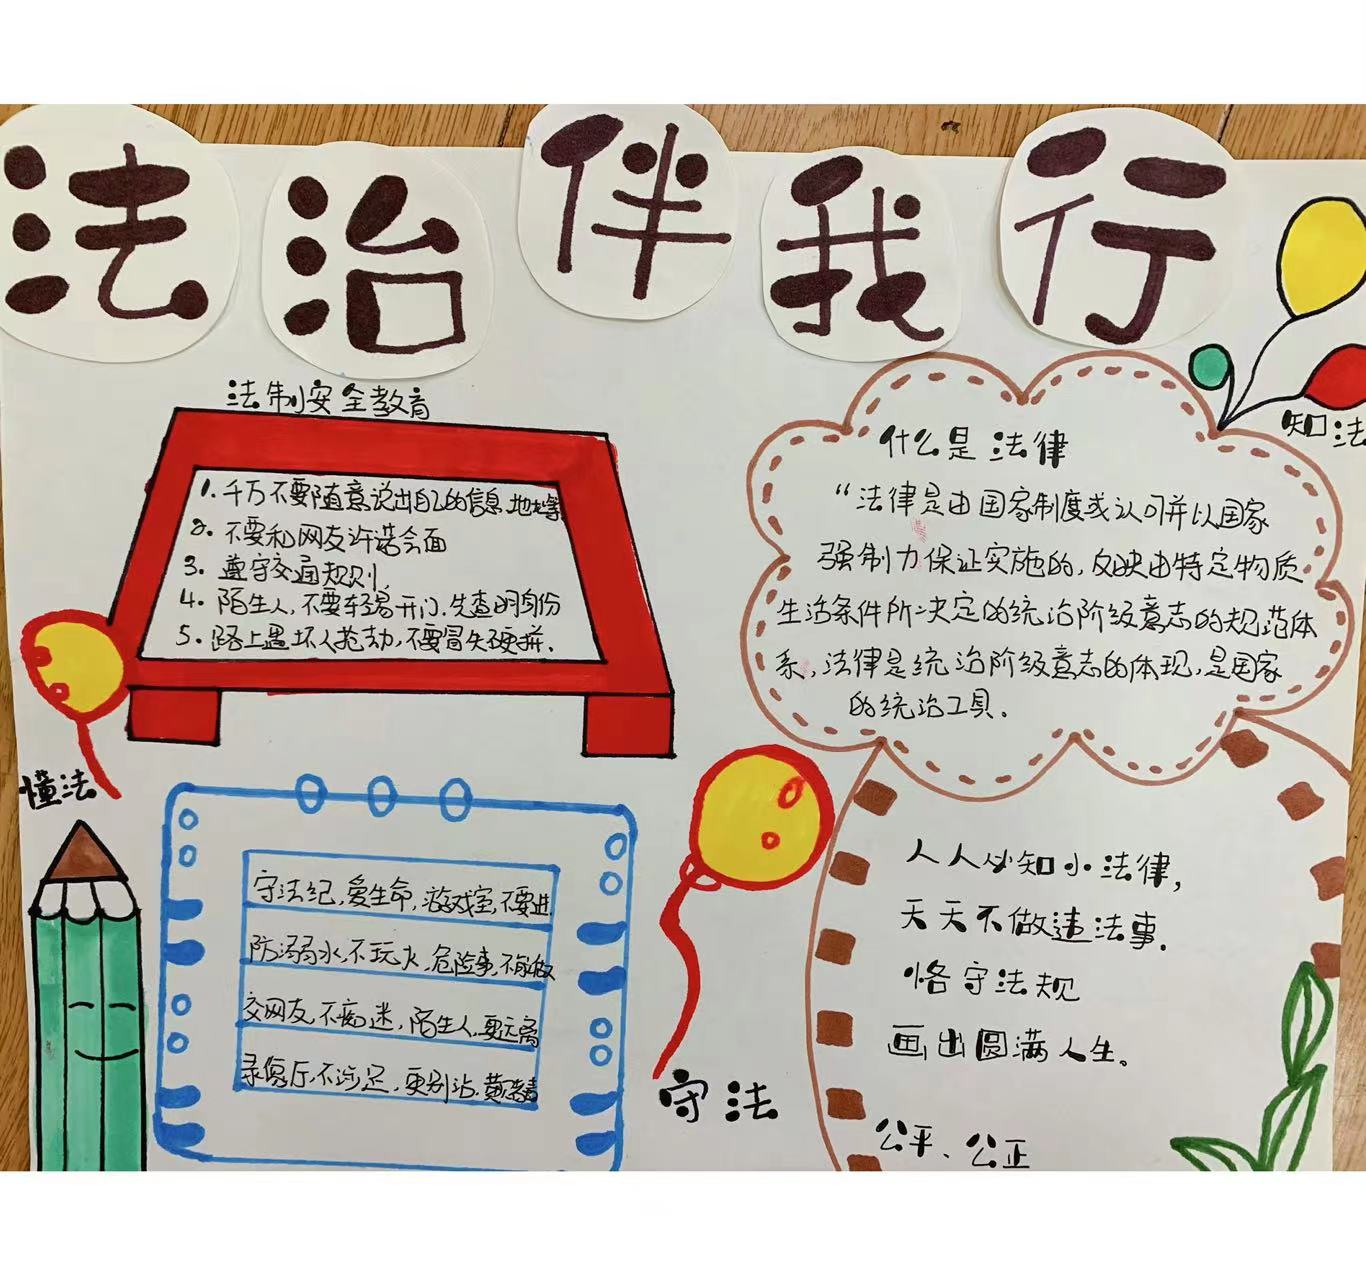 法治伴我行
法制安全教育
1. 千万不要随意说出自己的信息,地址等
2. 不要和网友许诺会面
3. 遵守交通规则.
4. 陌生人,不要轻易开门,先查明身份
5. 路上遇坏人抢劫,不要冒失硬拼.
懂法
守法纪,爱生命,游戏室,不要进
防溺水,不玩火,危险事,不能做
交网友,不痴迷,陌生人,要远离
录像厅,不涉足,更别沾,黄赌毒
守法
知法
什么是法律
“法律是由国家制度或认可并以国家
强制力保证实施的,反映由特定物质
生活条件所决定的统治阶级意志的规范体
系,法律是统治阶级意志的体现,是国家
的统治工具.
人人必知小法律,
天天不做违法事.
恪守法规
画出圆满人生。
公平、公正